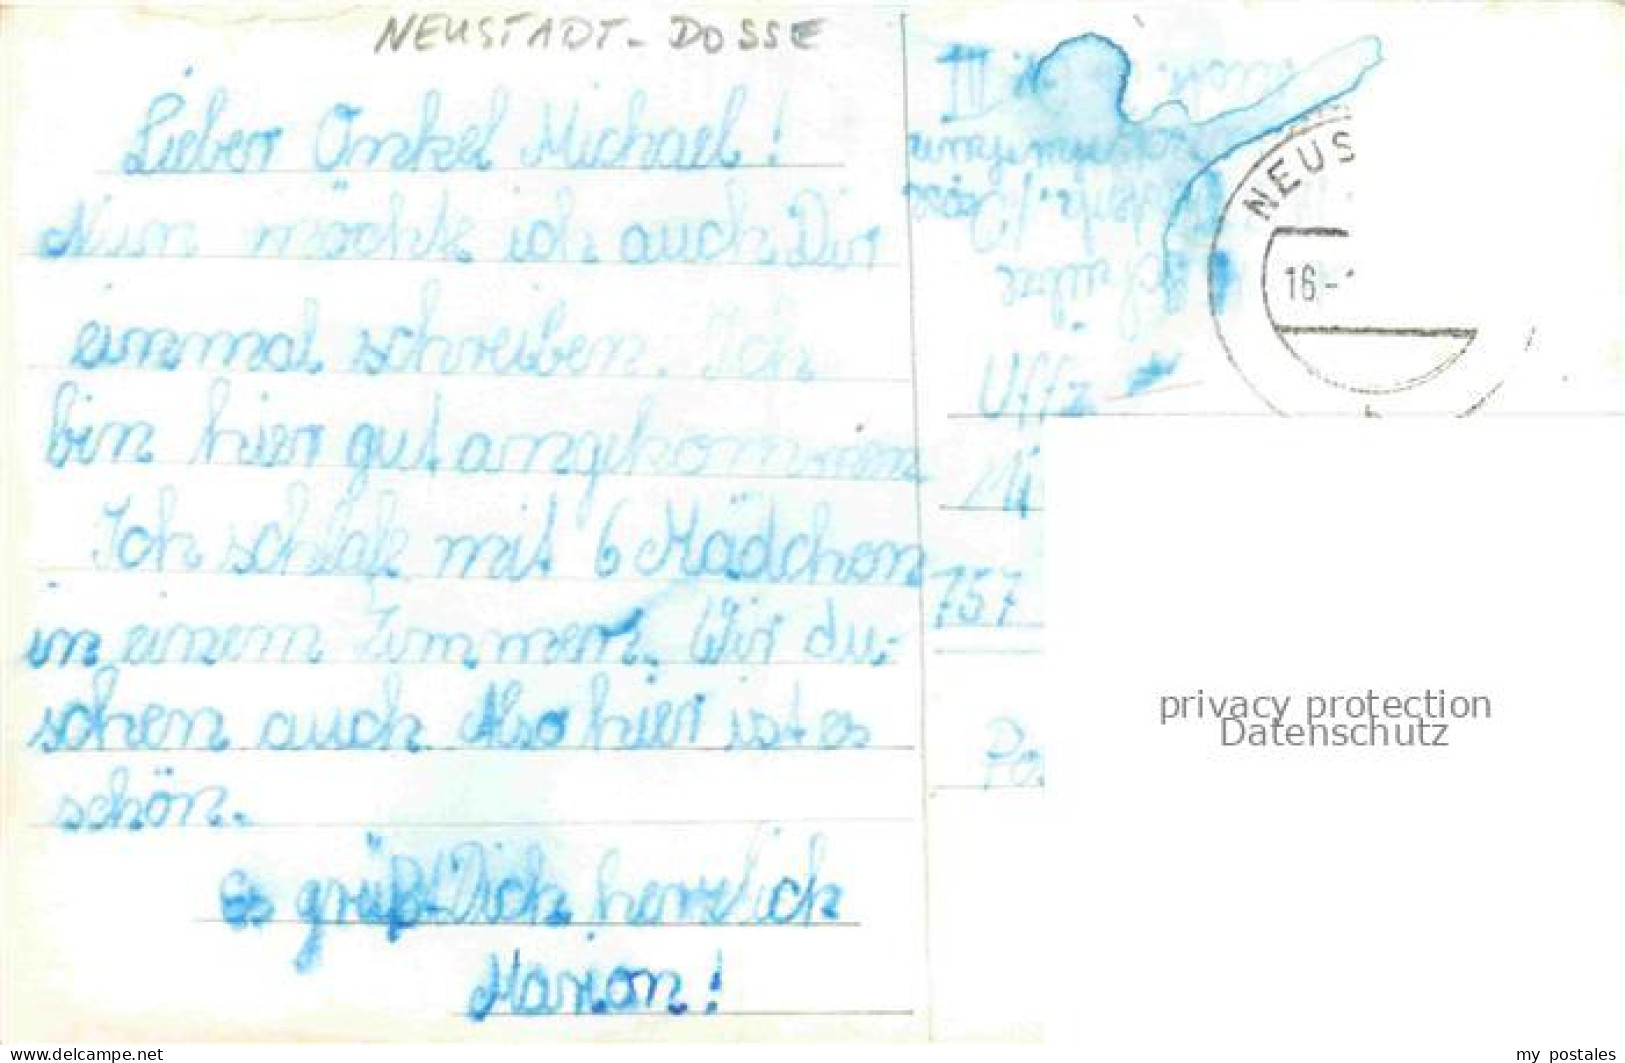 NEUSTADT-DOSSE
Lieber Onkel Michael!
Nun möchte ich auch Dir
einmal schreiben. Ich
bin hier gut angekommen
Ich schlafe mit 6 Mädchen
in einem Zimmer. Wir du-
schen auch. Also hier ist es
schön.
Es grüßt Dich herzlich
Marion!
NEUS
16.-
Uffz
Mi
757
Po
privacy protection
Datenschutz
www.delcampe.net
my_postales